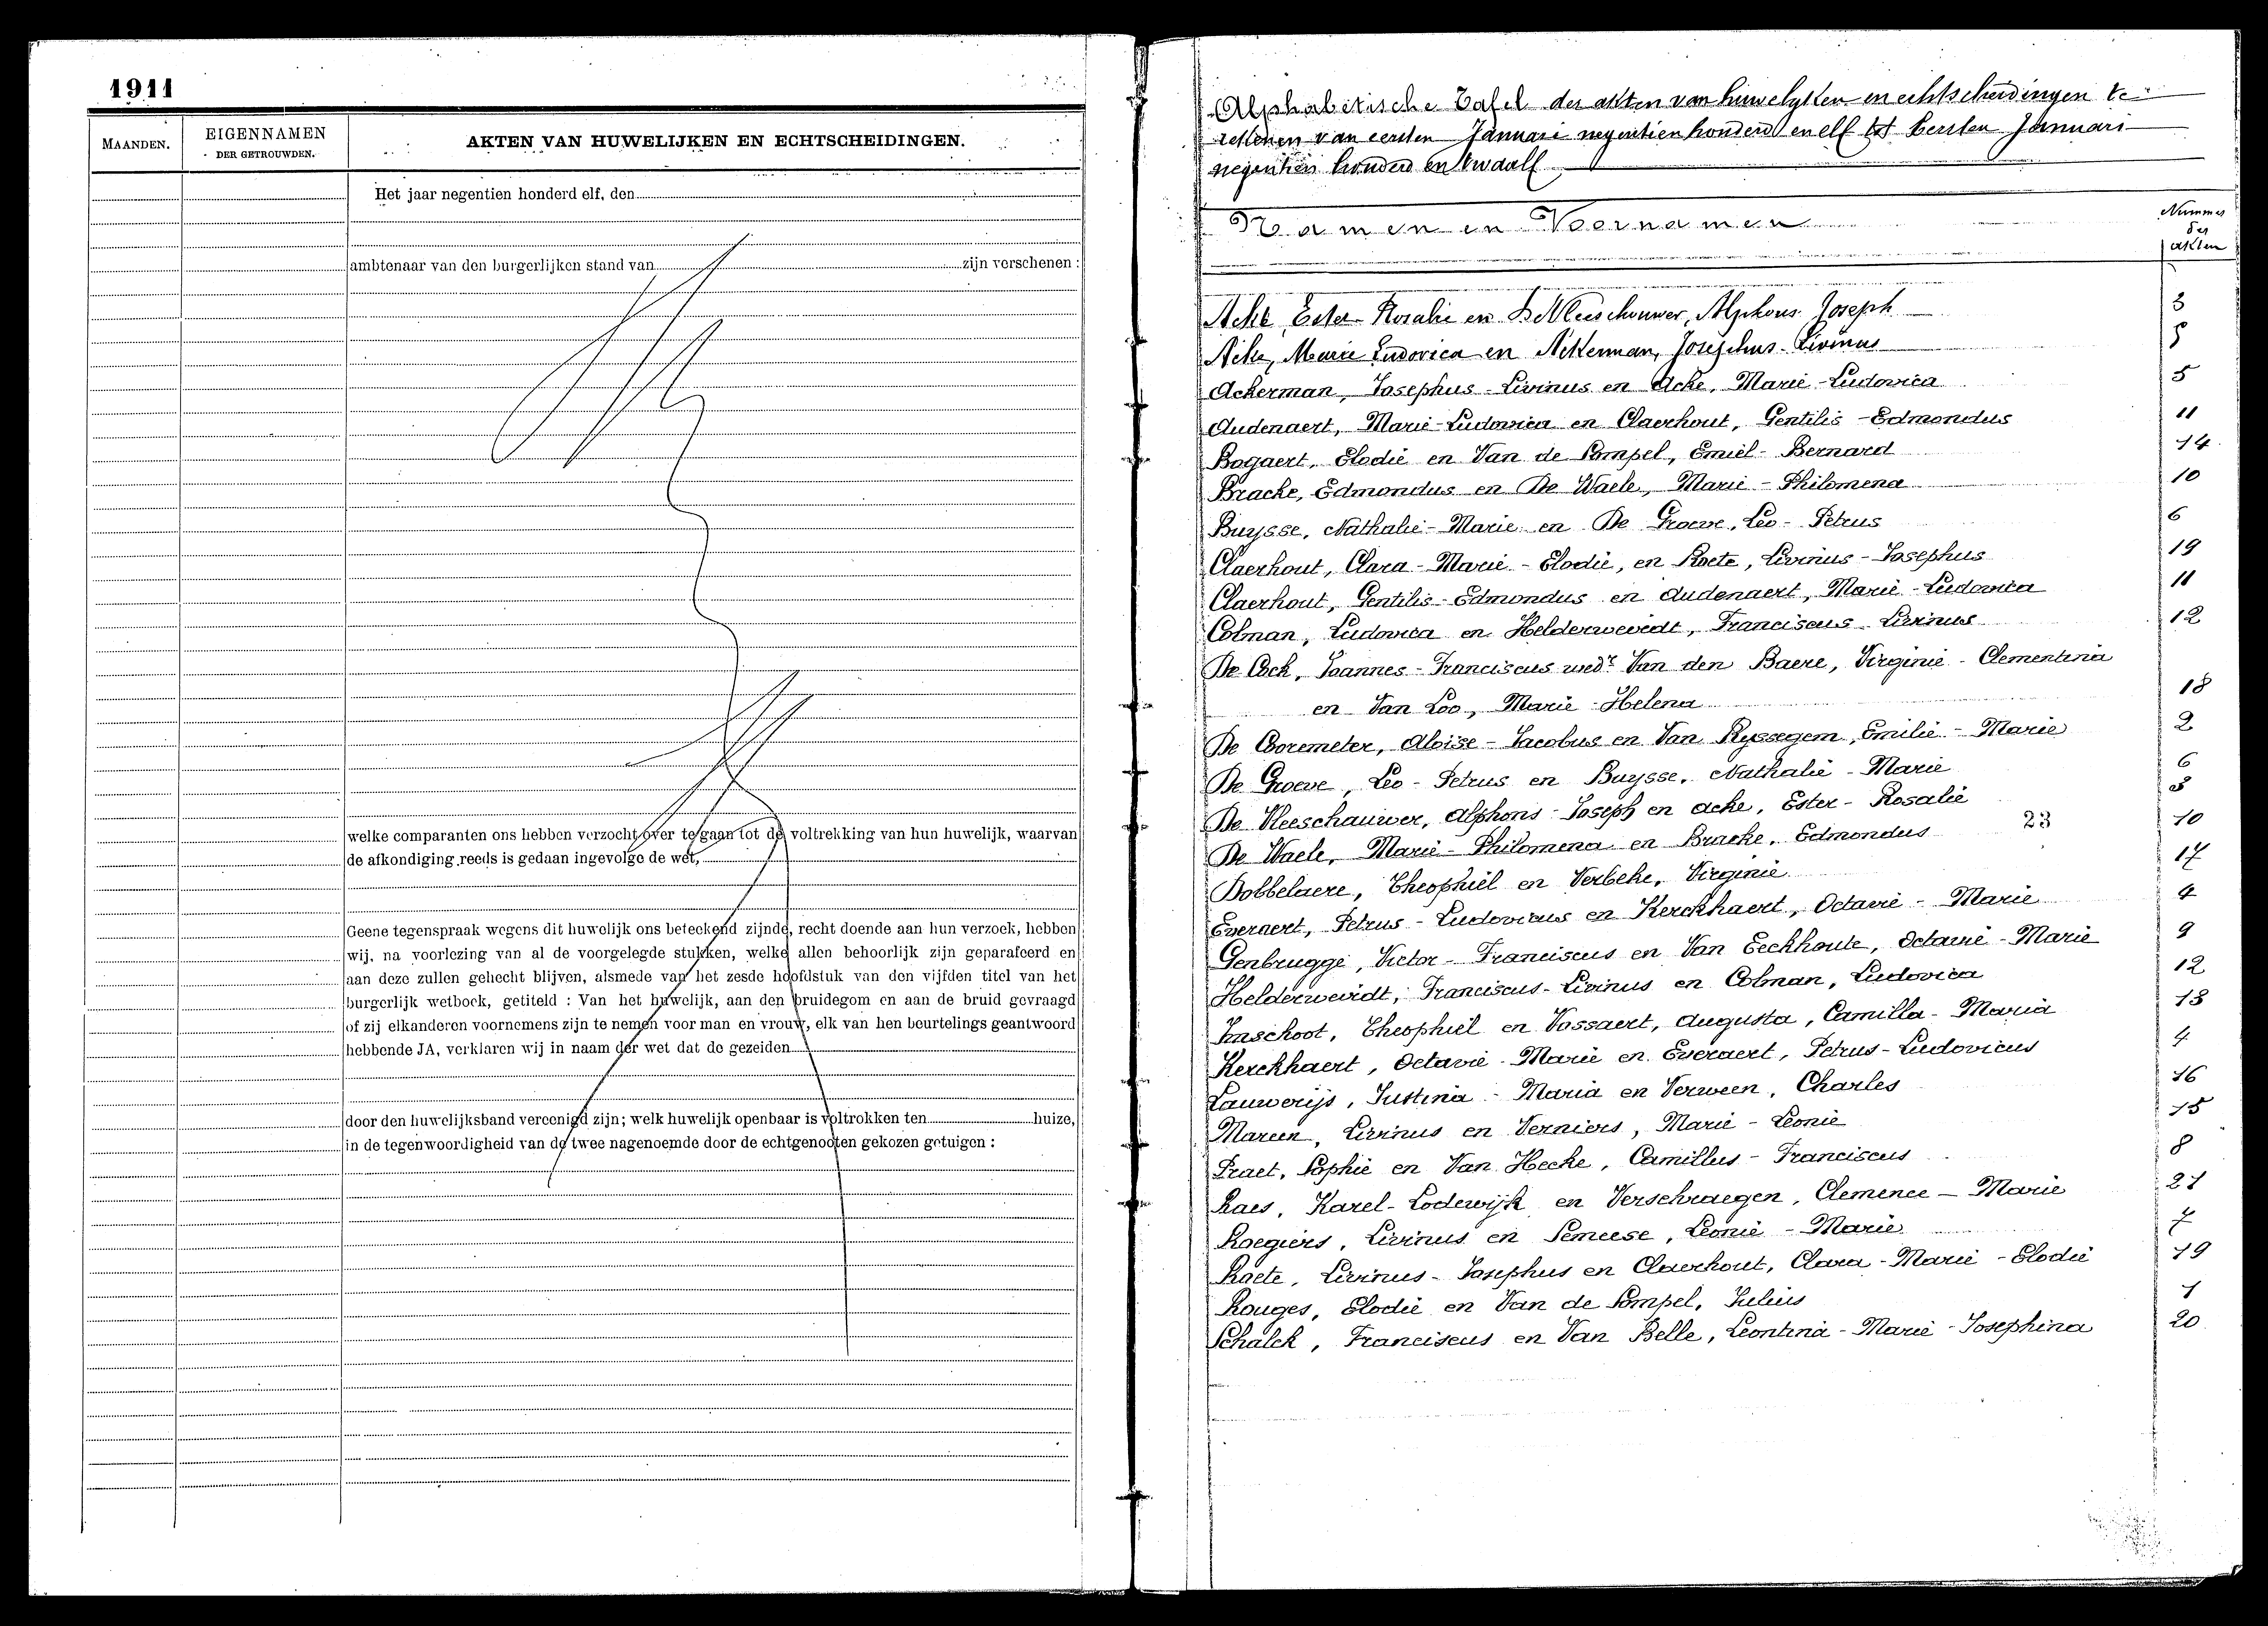 1911
MAANDEN.
EIGENNAMEN
DER GETROUWDEN.
AKTEN VAN HUWELIJKEN EN ECHTSCHEIDINGEN.
Het jaar negentien honderd elf, den
ambtenaar van den burgerlijken stand van zijn verschenen :
welke comparanten ons hebben verzocht over te gaan tot de voltrekking van hun huwelijk, waarvan
de afkondiging reeds is gedaan ingevolge de wet,
Geene tegenspraak wegens dit huwelijk ons beteekend zijnde, recht doende aan hun verzoek, hebben
wij, na voorlezing van al de voorgelegde stukken, welke allen behoorlijk zijn geparafeerd en
aan deze zullen gehecht blijven, alsmede van het zesde hoofdstuk van den vijfden titel van het
burgerlijk wetboek, getiteld : Van het huwelijk, aan den bruidegom en aan de bruid gevraagd
of zij elkanderen voornemens zijn te nemen voor man en vrouw, elk van hen beurtelings geantwoord
hebbende JA, verklaren wij in naam der wet dat de gezeiden
door den huwelijksband vereenigd zijn; welk huwelijk openbaar is voltrokken ten huize,
in de tegenwoordigheid van de twee nagenoemde door de echtgenooten gekozen getuigen :
Alphabetische Tafel der akten van huwelyken en echtscheidingen te
rekenen van eersten Januari negentien honderd en elf tot eersten Januari
negentien honderd en twaalf
Namen en Voornamen
Nummer
der
akten
Ache, Ester Rosalie en De Vleeschouwer, Alphons Joseph 3
Ache, Marie Ludovica en Ackerman, Josephus Livinus 5
Ackerman, Josephus-Livinus en Ache, Marie-Ludovica 5
Audenaert, Marie-Ludovica en Claerhout, Gentilis-Edmondus 11
Bogaert, Elodie en Van de Pompel, Emiel-Bernard 14
Bracke, Edmondus en De Waele, Marie-Philomena 10
Buysse, Nathalie-Marie en De Groeve, Leo-Petrus 6
Claerhout, Clara-Marie-Elodie, en Roete, Livinus-Josephus 19
Claerhout, Gentilis-Edmondus en Audenaert, Marie-Ludovica 11
Colman, Ludovica en Helderweirdt, Franciscus-Livinus 12
De Cock, Joannes-Franciscus wedr Van den Baere, Virginie-Clementina
en Van Loo, Marie-Helena 18
De Cooremeter, Aloïse-Jacobus en Van Ryssegem, Emilie-Marie 2
De Groeve, Leo-Petrus en Buysse, Nathalie-Marie 6
De Vleeschauwer, Alphons-Joseph en Ache, Ester-Rosalie 3
De Waele, Marie-Philomena en Bracke, Edmondus 10
23
Dobbelaere, Theophiel en Verbeke, Virginie 17
Everaert, Petrus-Ludovicus en Kerckhaert, Octavie-Marie 4
Genbrugge, Victor-Franciscus en Van Eeckhoute, Octavie-Marie 9
Helderweirdt, Franciscus-Livinus en Colman, Ludovica 12
Imschoot, Theophiel en Vossaert, Augusta, Camilla-Maria 13
Kerckhaert, Octavie-Marie en Everaert, Petrus-Ludovicus 4
Lauwerijs, Justina-Maria en Verween, Charles 16
Mareen, Livinus en Verniers, Marie-Leonie 15
Praet, Sophie en Van Hecke, Camillus-Franciscus 8
Raes, Karel-Lodewijk en Verschraegen, Clemence-Marie 21
Roegiers, Livinus en Semeese, Leonie-Marie 7
Roete, Livinus-Josephus en Claerhout, Clara-Marie-Elodie 19
Rouges, Elodie en Van de Pompel, Julius 1
Schalck, Franciscus en Van Belle, Leontina-Marie-Josephina 20